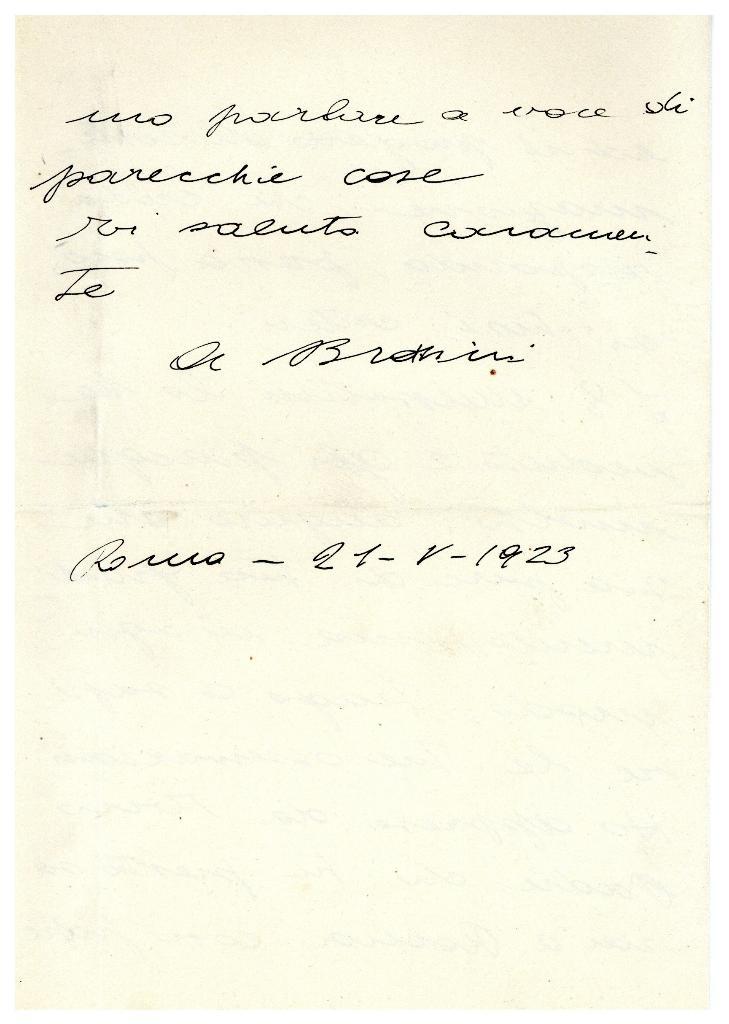 mo parlare a voce di
parecchie cose
Vi saluto caramen-
te
A Brasini
Roma - 21-V-1923